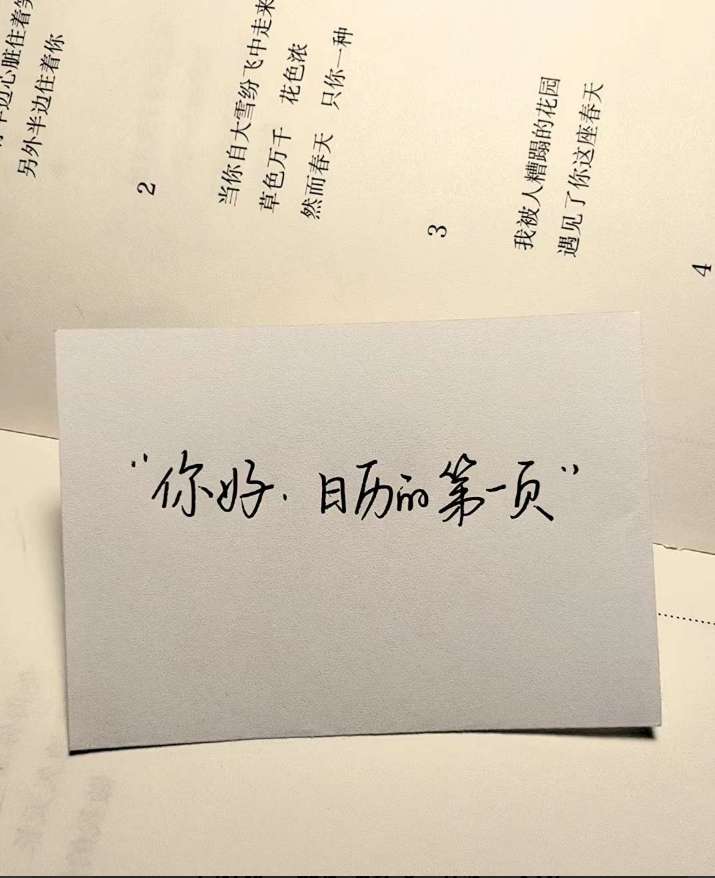 另外半边住着你
2
当你自大雪纷飞中走来
草色万千 花色浓
然而春天 只你一种
3
我被人糟蹋的花园
遇见了你这座春天
4
“你好.日历的第一页”